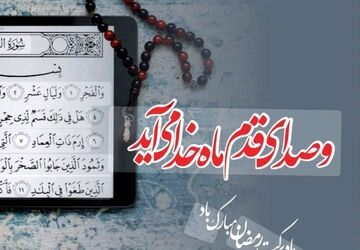 سُورَةُ
بِسْمِ
وَالْفَجْرِ ١ وَلَيَالٍ عَشْرٍ ٢
٤ هَلْ فِي ذَٰلِكَ قَسَمٌ لِّذِي حِجْرٍ
٦ إِرَمَ ذَاتِ الْعِمَادِ ٧ الَّتِي
وَثَمُودَ الَّذِينَ جَابُوا الصَّخْرَ بِالْوَادِ
١٠ الَّذِينَ طَغَوْا فِي الْبِلَادِ ١١
و صدای قدم ماه خدا می آید
برکت رمضان مبارک باد